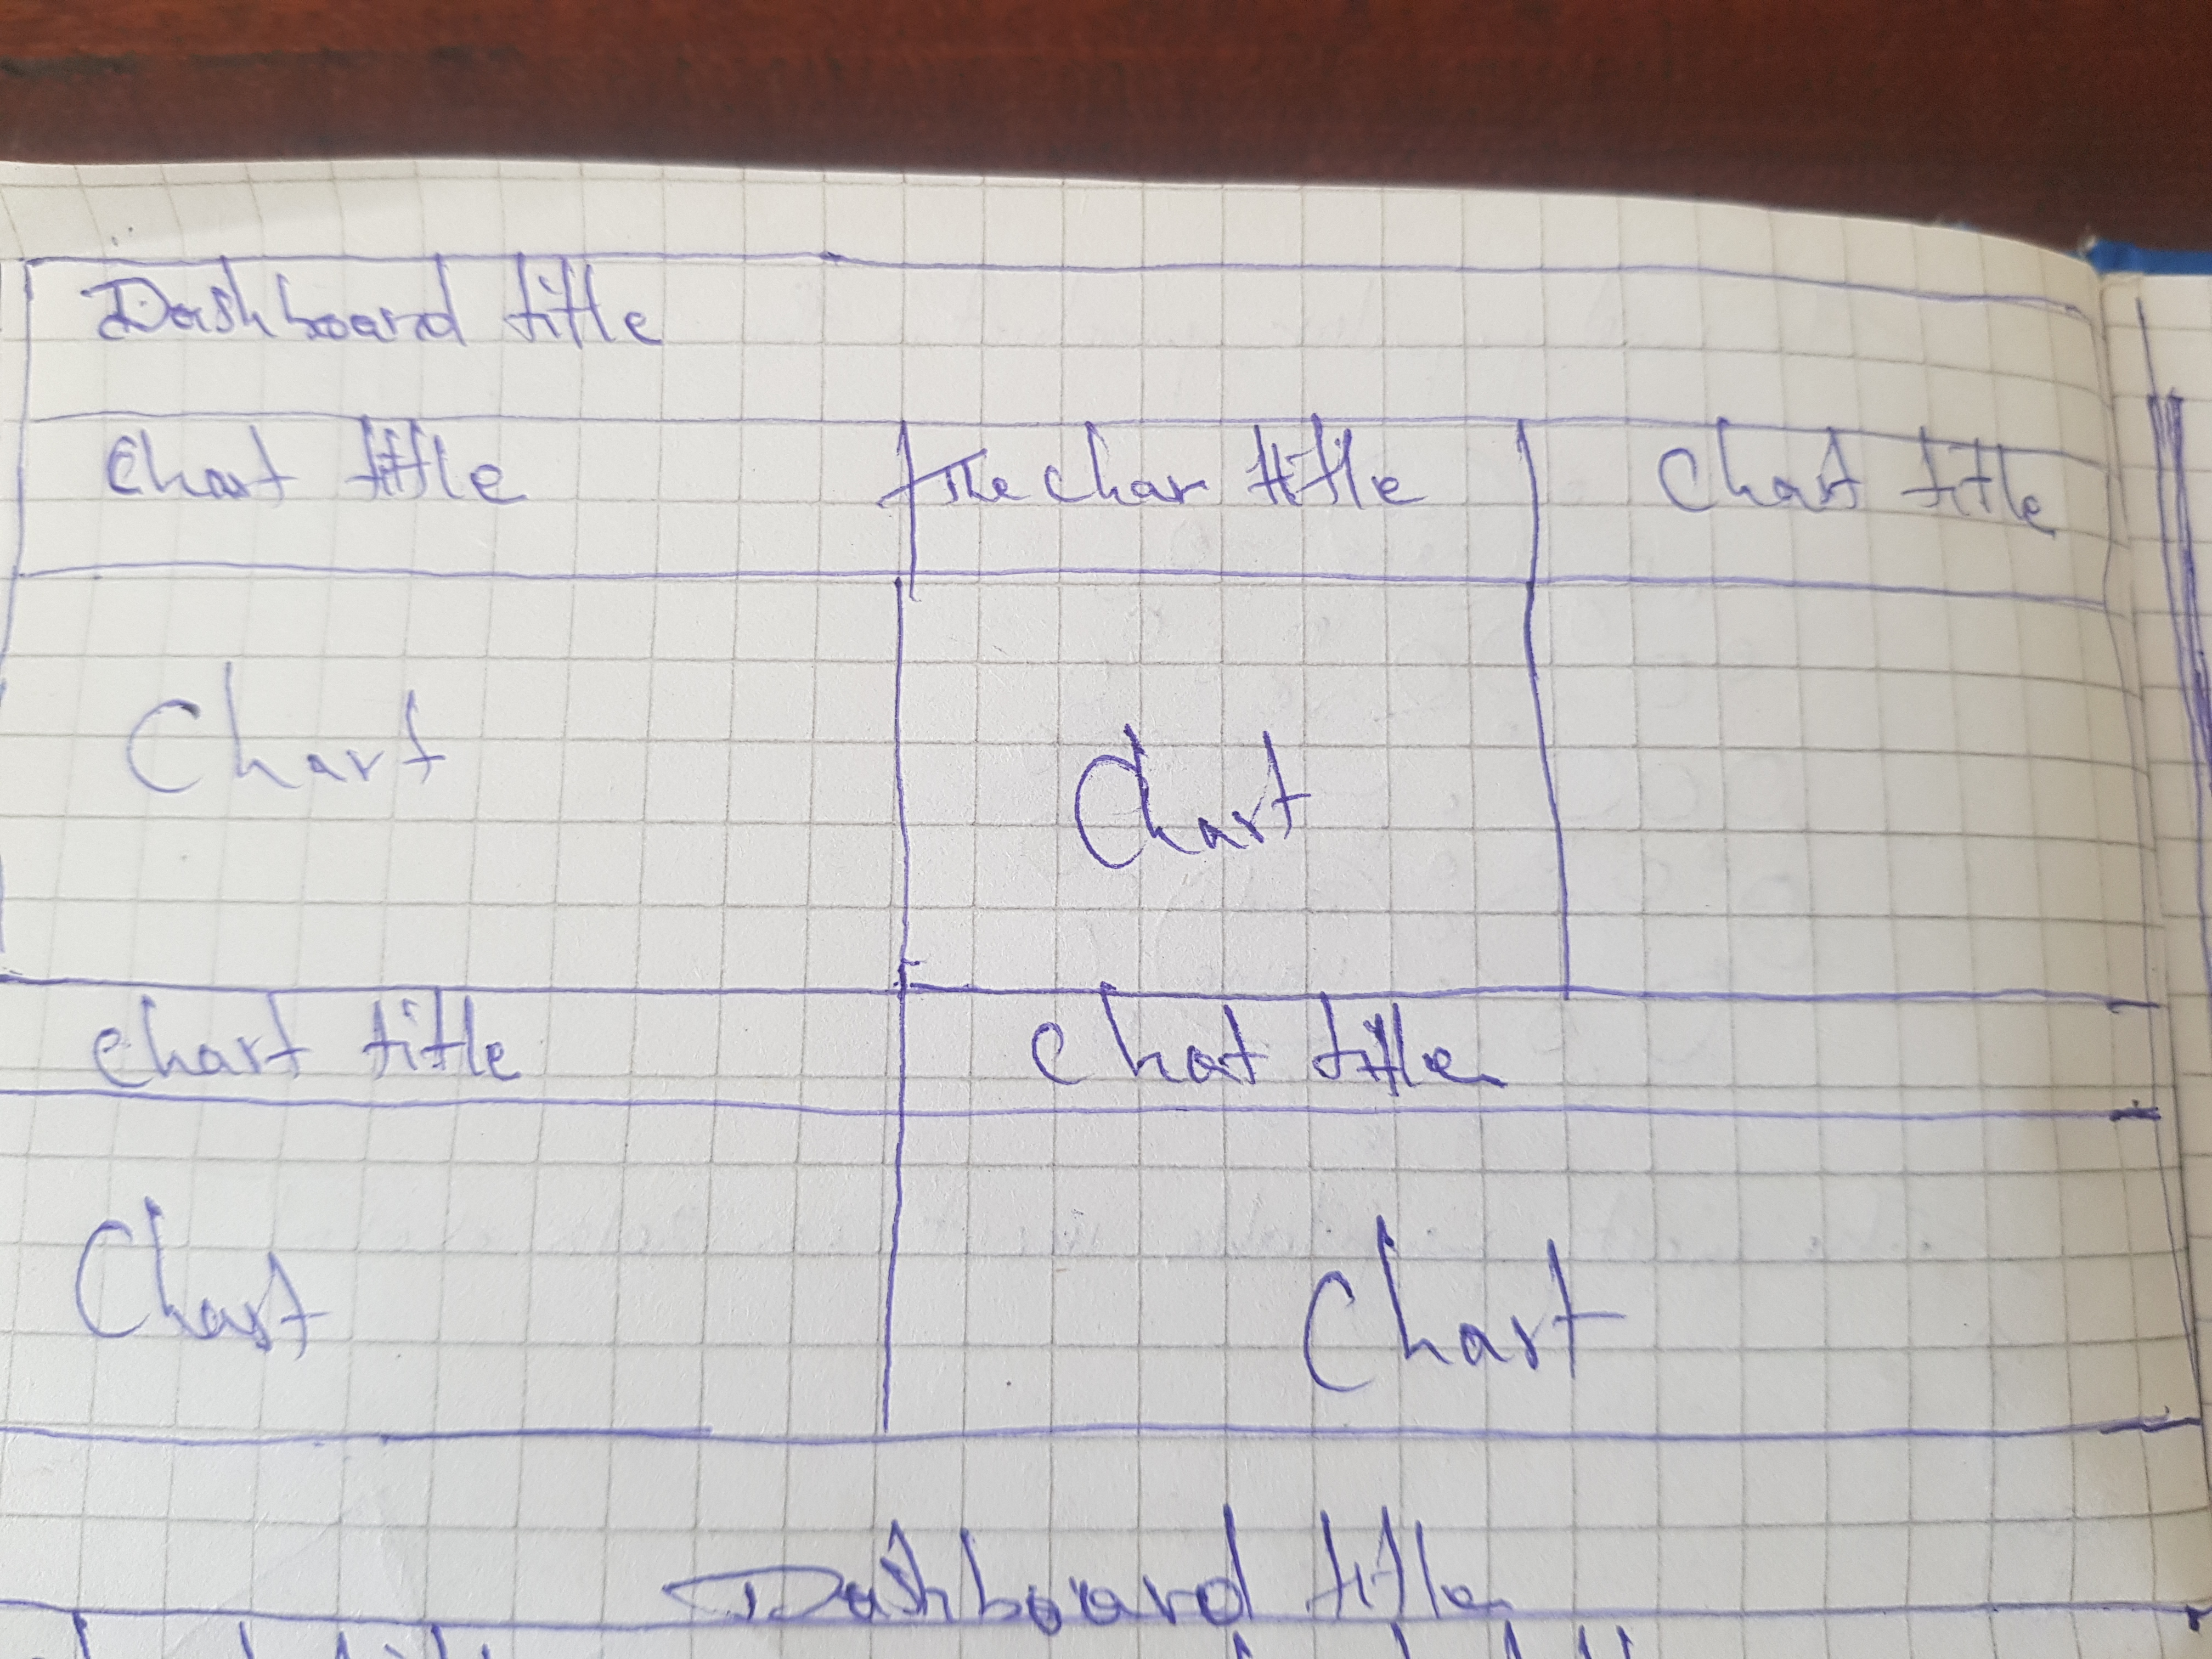 Dashboard title
Chart title The char title Chart title
Chart Chart
Chart title Chat title
Chart Chart
Dashboard title